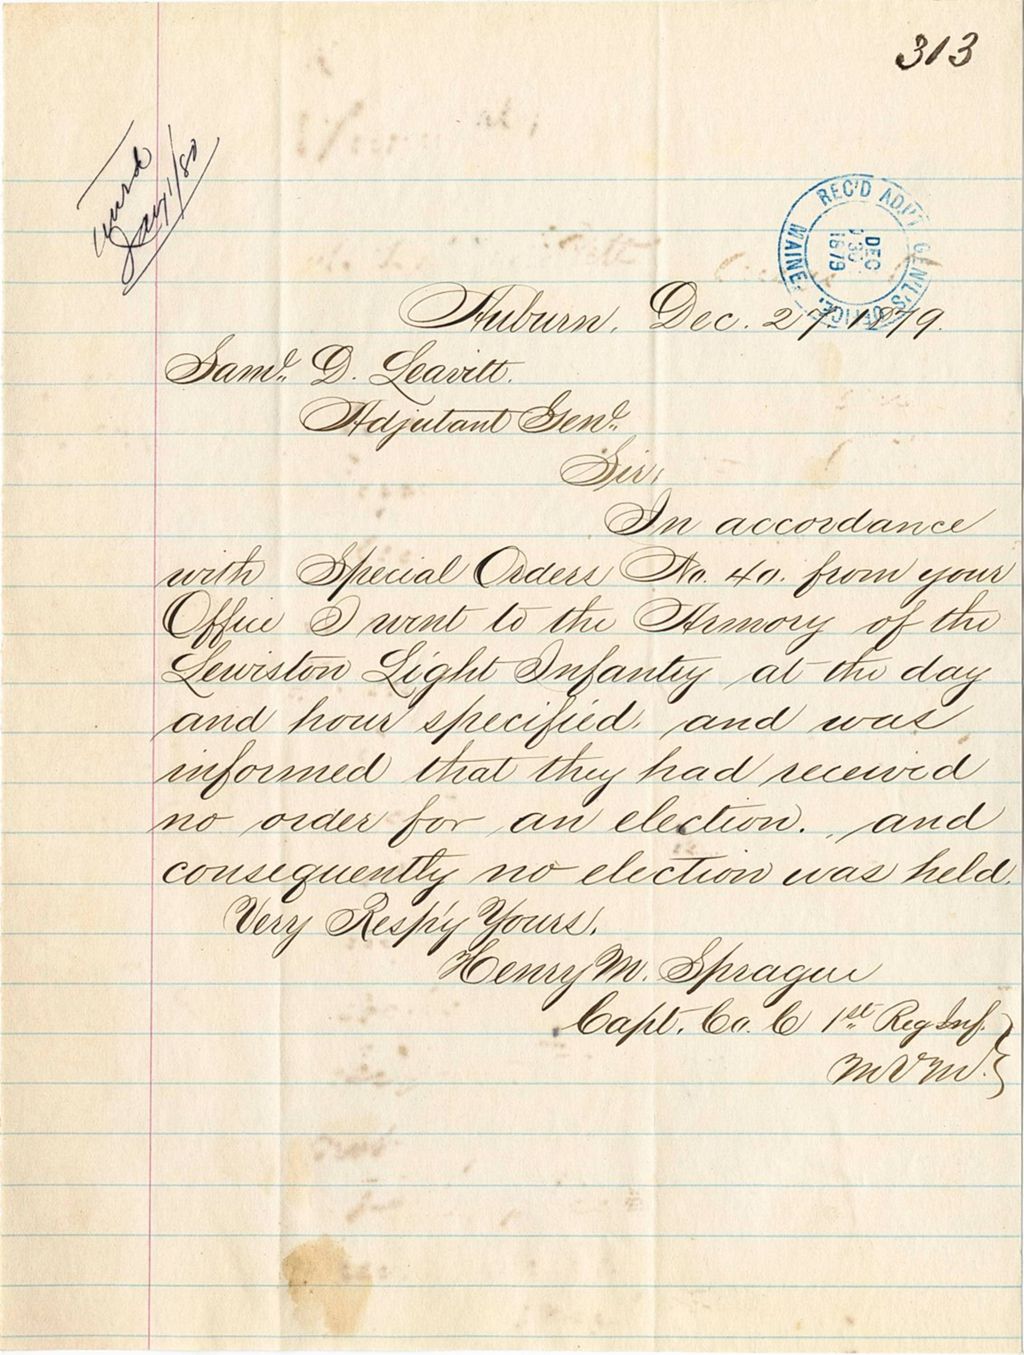 313
Jany 1/80
REC'D ADJ'T GEN'L'S OFFICE. MAINE
DEC
30
1879
Auburn, Dec. 27, 1879.
Saml. D. Leavitt.
Adjutant Genl.
Sir,
In accordance
with Special Orders No. 40. from your
Office I went to the Armory of the
Lewiston Light Infantry at the day
and hour specified, and was
informed that they had received
no order for an election., and
consequently no election was held.
Very Resp'y Yours,
Henry M. Sprague
Capt. Co. C 1st Reg Inf. }
M V M. }